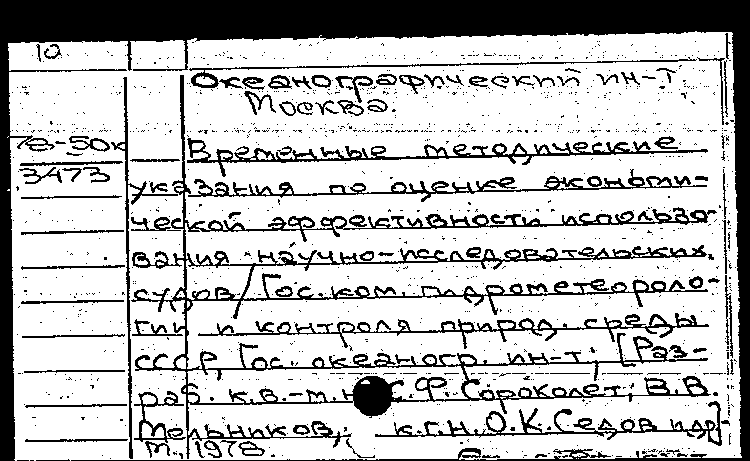 10
Океанографический ин-т.
Москва.
78-50к
3473
Временные методические
указания по оценке экономи-
ческой эффективности использо-
вания научно-исследовательских
судов / Гос. ком. гидрометеороло-
гии и контроля природ. среды
СССР, Гос. океаногр. ин-т; [Раз-
раб. к.в.-м.н. С.Ф. Сороколет; В.В.
Мельников, к.г.н. О.К. Седов и др.]
М., 1978.